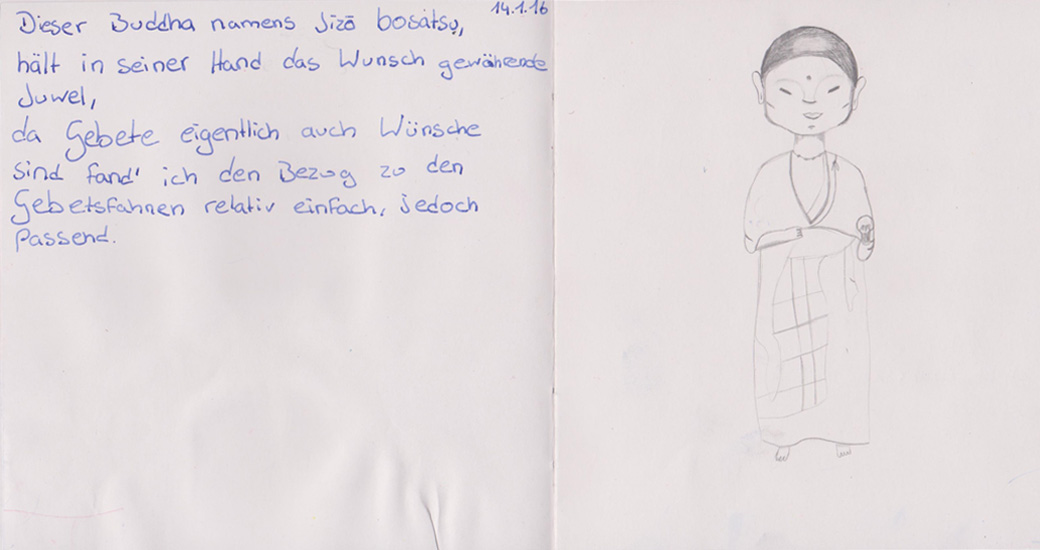 14.1.16
Dieser Buddha namens Jizō bosátsu,
hält in seiner Hand das Wunsch gewährende
Juwel,
da Gebete eigentlich auch Wünsche
sind fand' ich den Bezug zu den
Gebetsfahnen relativ einfach, jedoch
passend.